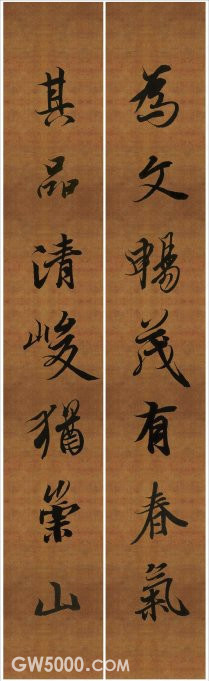 為文暢茂有春氣
其品清峻猶崇山
GW5000.COM